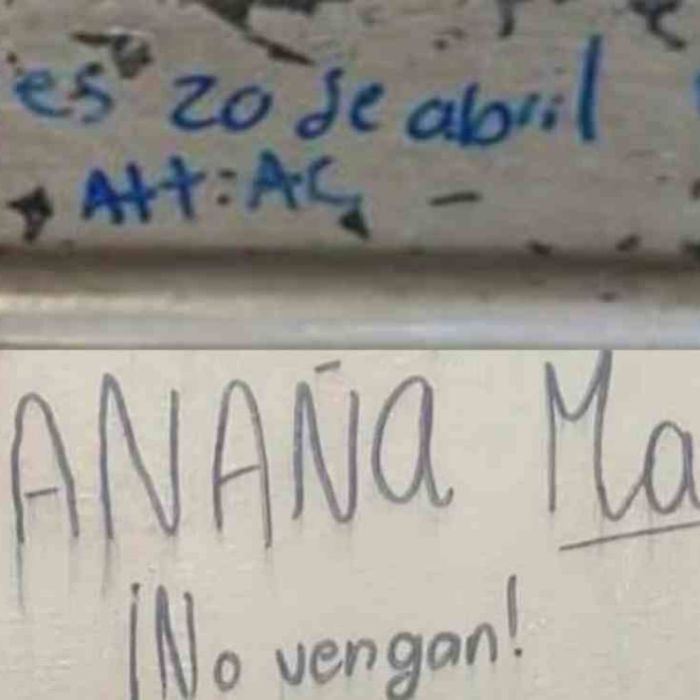 es 20 de abril
Att: AC
ANAÑA Ma
¡No vengan!